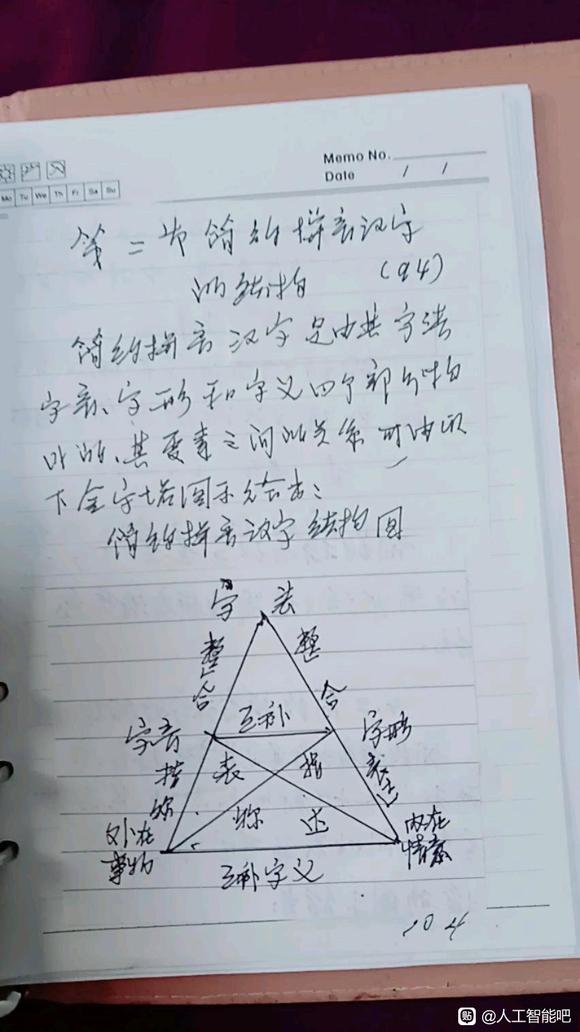 Memo No.
Date / /
Mo Tu We Th Fr Sa Su
第二节 简约拼音汉字
的结构 (94)
简约拼音汉字是由其字法
字音、字形和字义四个部分构
的、其要素之间的关系可由以
下金字塔图示给出:
简约拼音汉字结构图
字法
整合 整合
字音 互补 字形
指称 表述 指称 表达
外在事物 内在情意
互补字义
104
贴 @人工智能吧